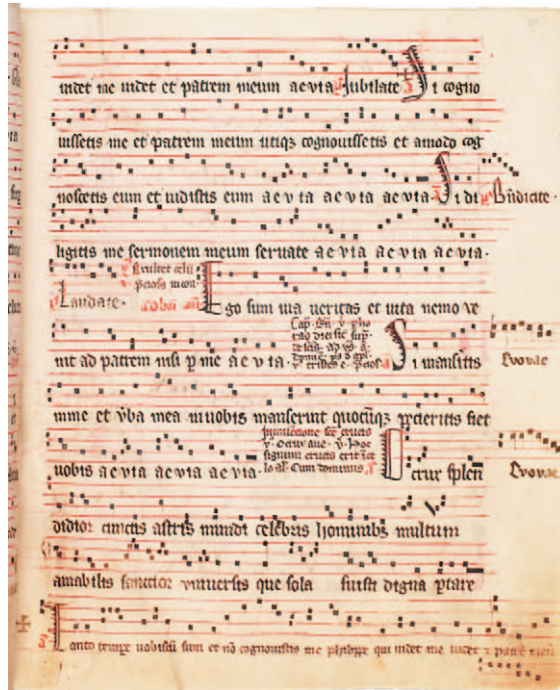 uidet me uidet et patrem meum aevia Iubilate Si cogno
uissetis me et patrem meum utiqz cognouissetis et amodo cog
noscetis eum et uidistis eum aevia aevia aevia Si di Bndicite
ligitis me sermonem meum seruate aevia aevia aevia
Exultet celu
Laudate Ego sum uia ueritas et uita nemo ve
nit ad patrem nisi p me aevia Si mansitis Evovae
in me et vba mea in uobis manserint quotciqz petieritis fiet
Inuencione sce crucis
v O crux aue v Hoc
signum crucis erit
Cum dominus
uobis aevia aevia aevia O crux splen Evovae
didior cunctis astris mundi celebris hominibz multum
amabilis sanctior vniuersis que sola fuisti digna ptare
Tanto tempe uobiscu sum et no cognouistis me philippe qui uidet me uidet z patre meu